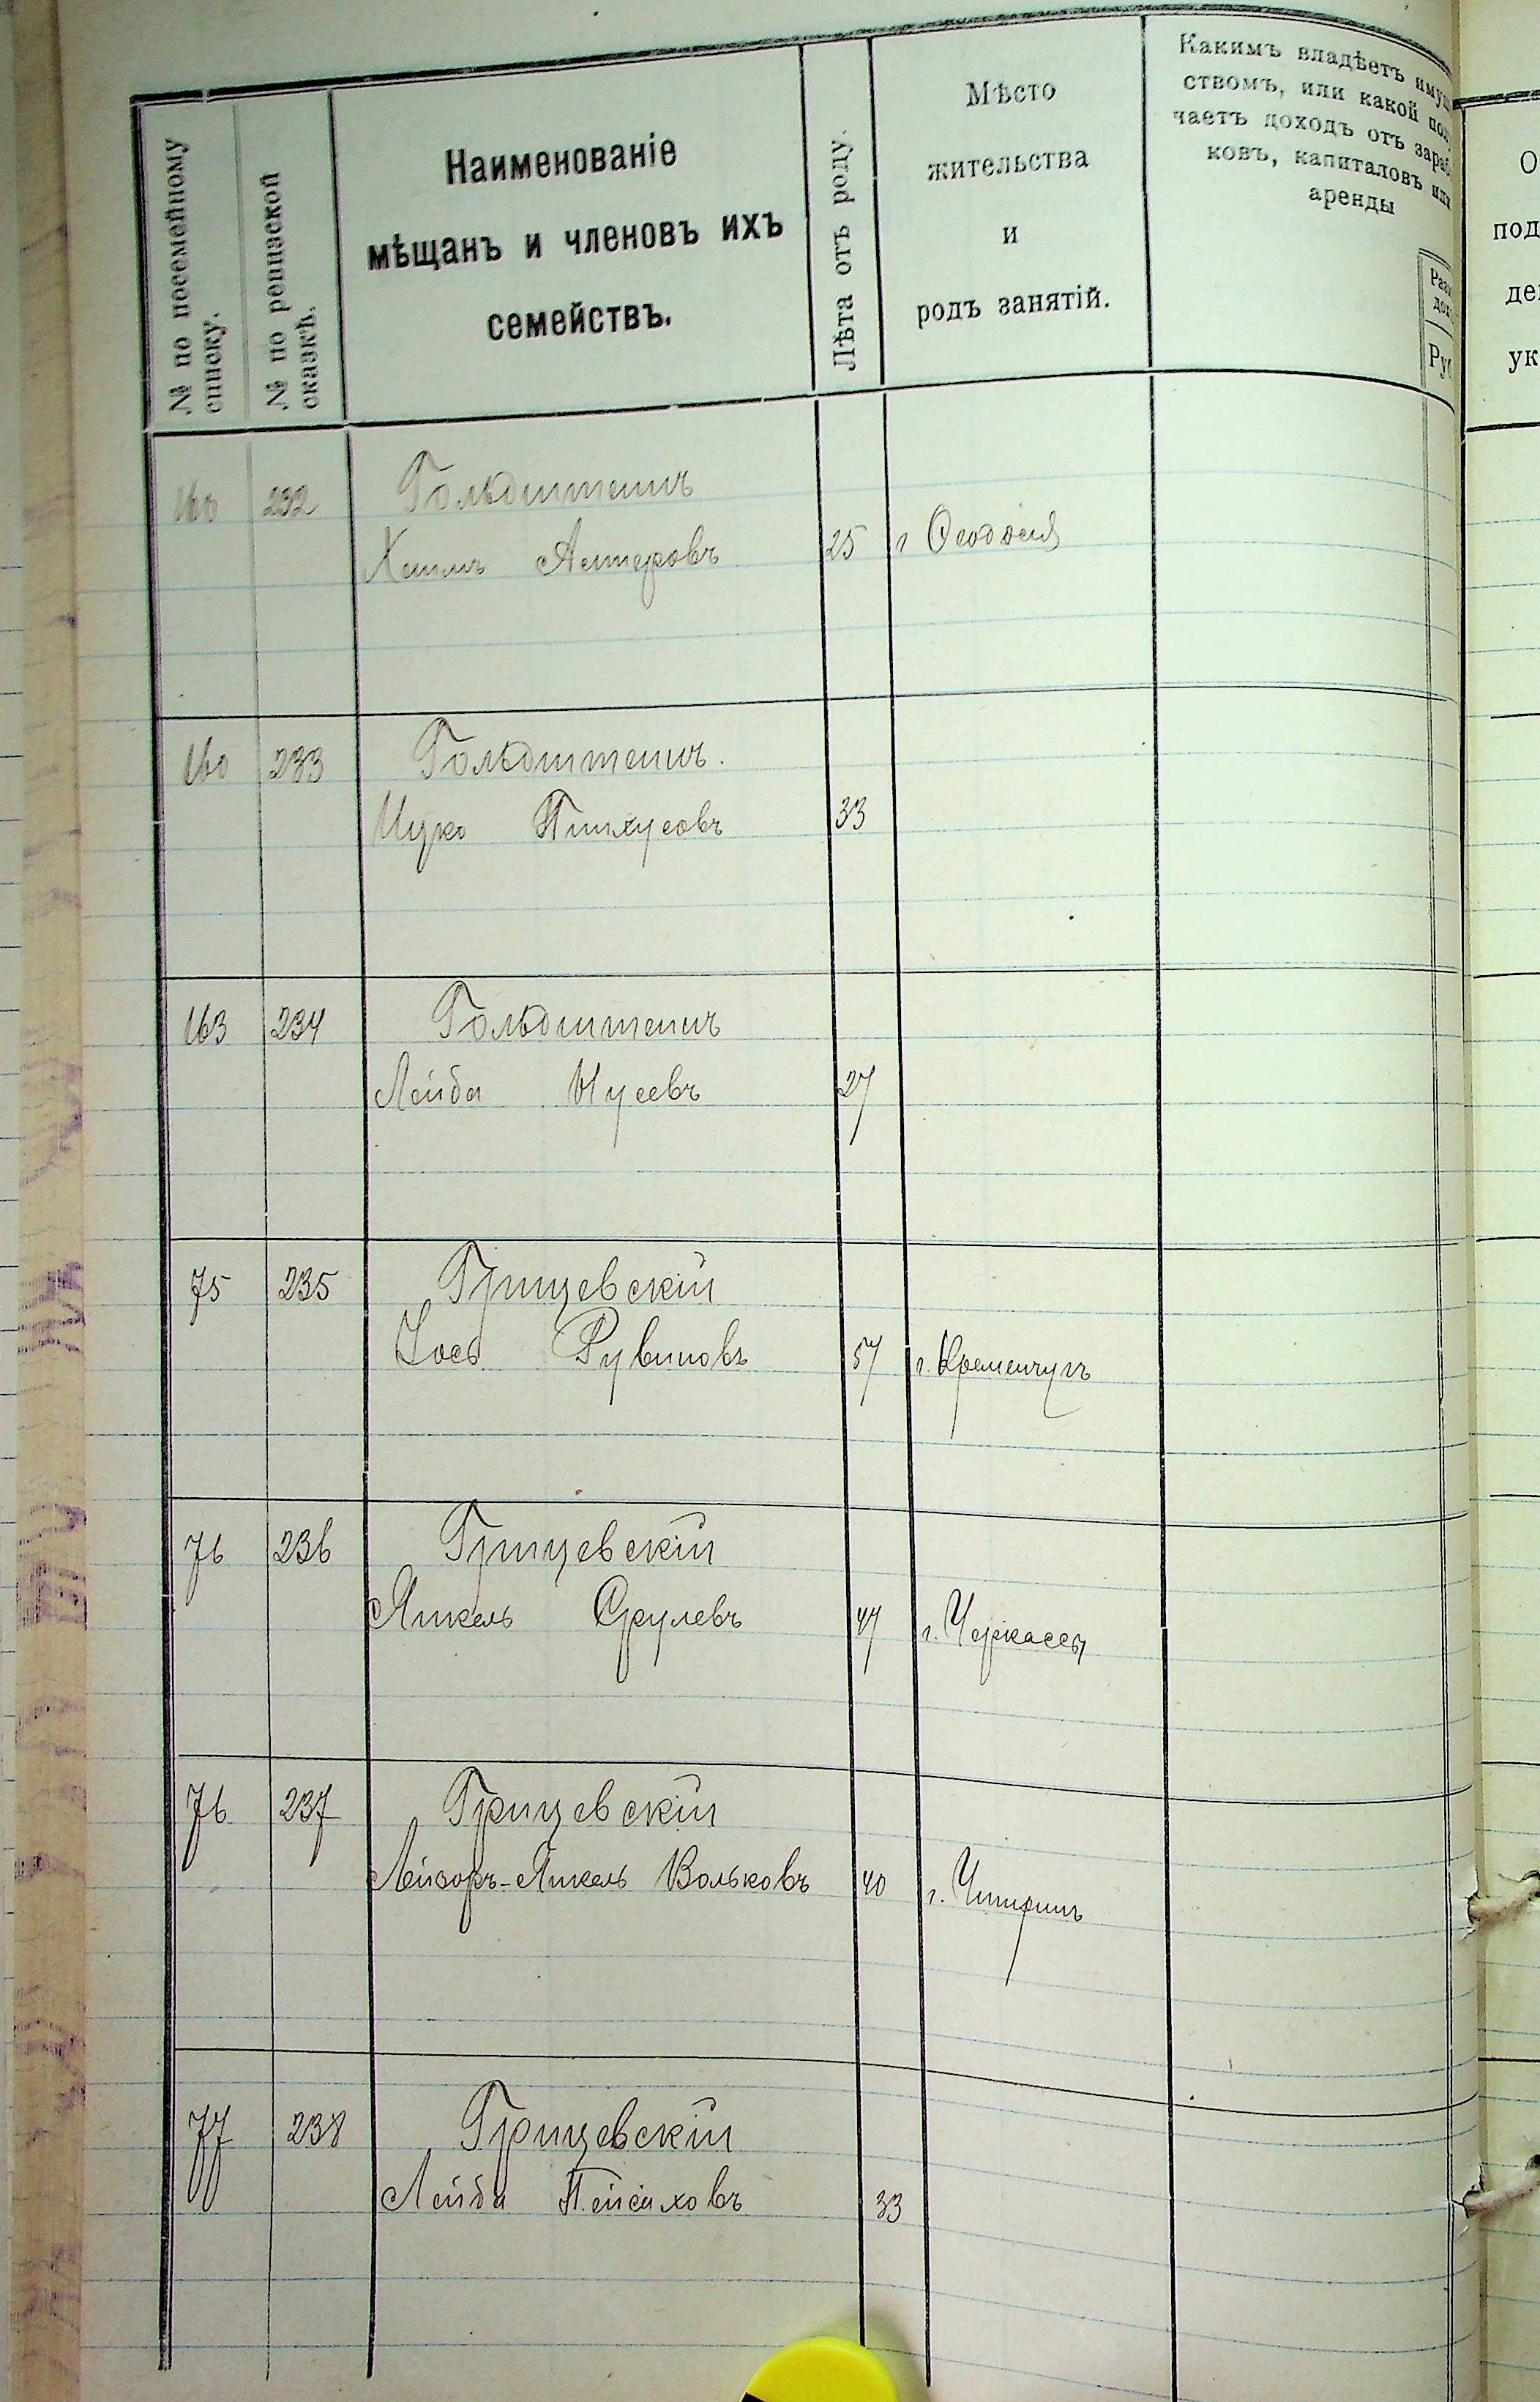 № по посемейному
списку.
№ по ревизской
сказкѣ.
Наименованіе
мѣщанъ и членовъ ихъ
семействъ.
Лѣта отъ роду.
Мѣсто
жительства
и
родъ занятій.
Какимъ владѣетъ имущ
ствомъ, или какой пол
чаетъ доходъ отъ зараб
ковъ, капиталовъ или
аренды
Руб
160 232 Гольдштейнъ
Хаимъ 25 г Ѳеодосія
160 233 Гольдштейнъ.
Ицко Пинхусовъ 33
163 234 Гольдштейнъ
Лейба Нусевъ 27
75 235 Грищевскій
Іось Рувиновъ 57 г. Кременчугъ
76 236 Грищевскій
Янкель Срулевъ 47 г. Черкассы
76 237 Грищевскій
Лейзоръ-Янкель Вольковъ 40 г. Чигиринъ
77 238 Грищевскій
Лейба Пейсаховъ 33